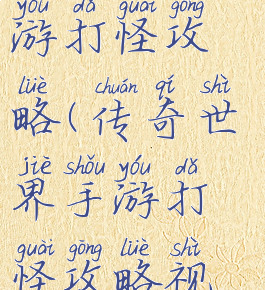 yóu dǎ guài gōng
游打怪攻
lüè chuán qí shì
略(传奇世
jiè shǒu yóu dǎ
界手游打
guài gōng lüè shì
怪攻略视